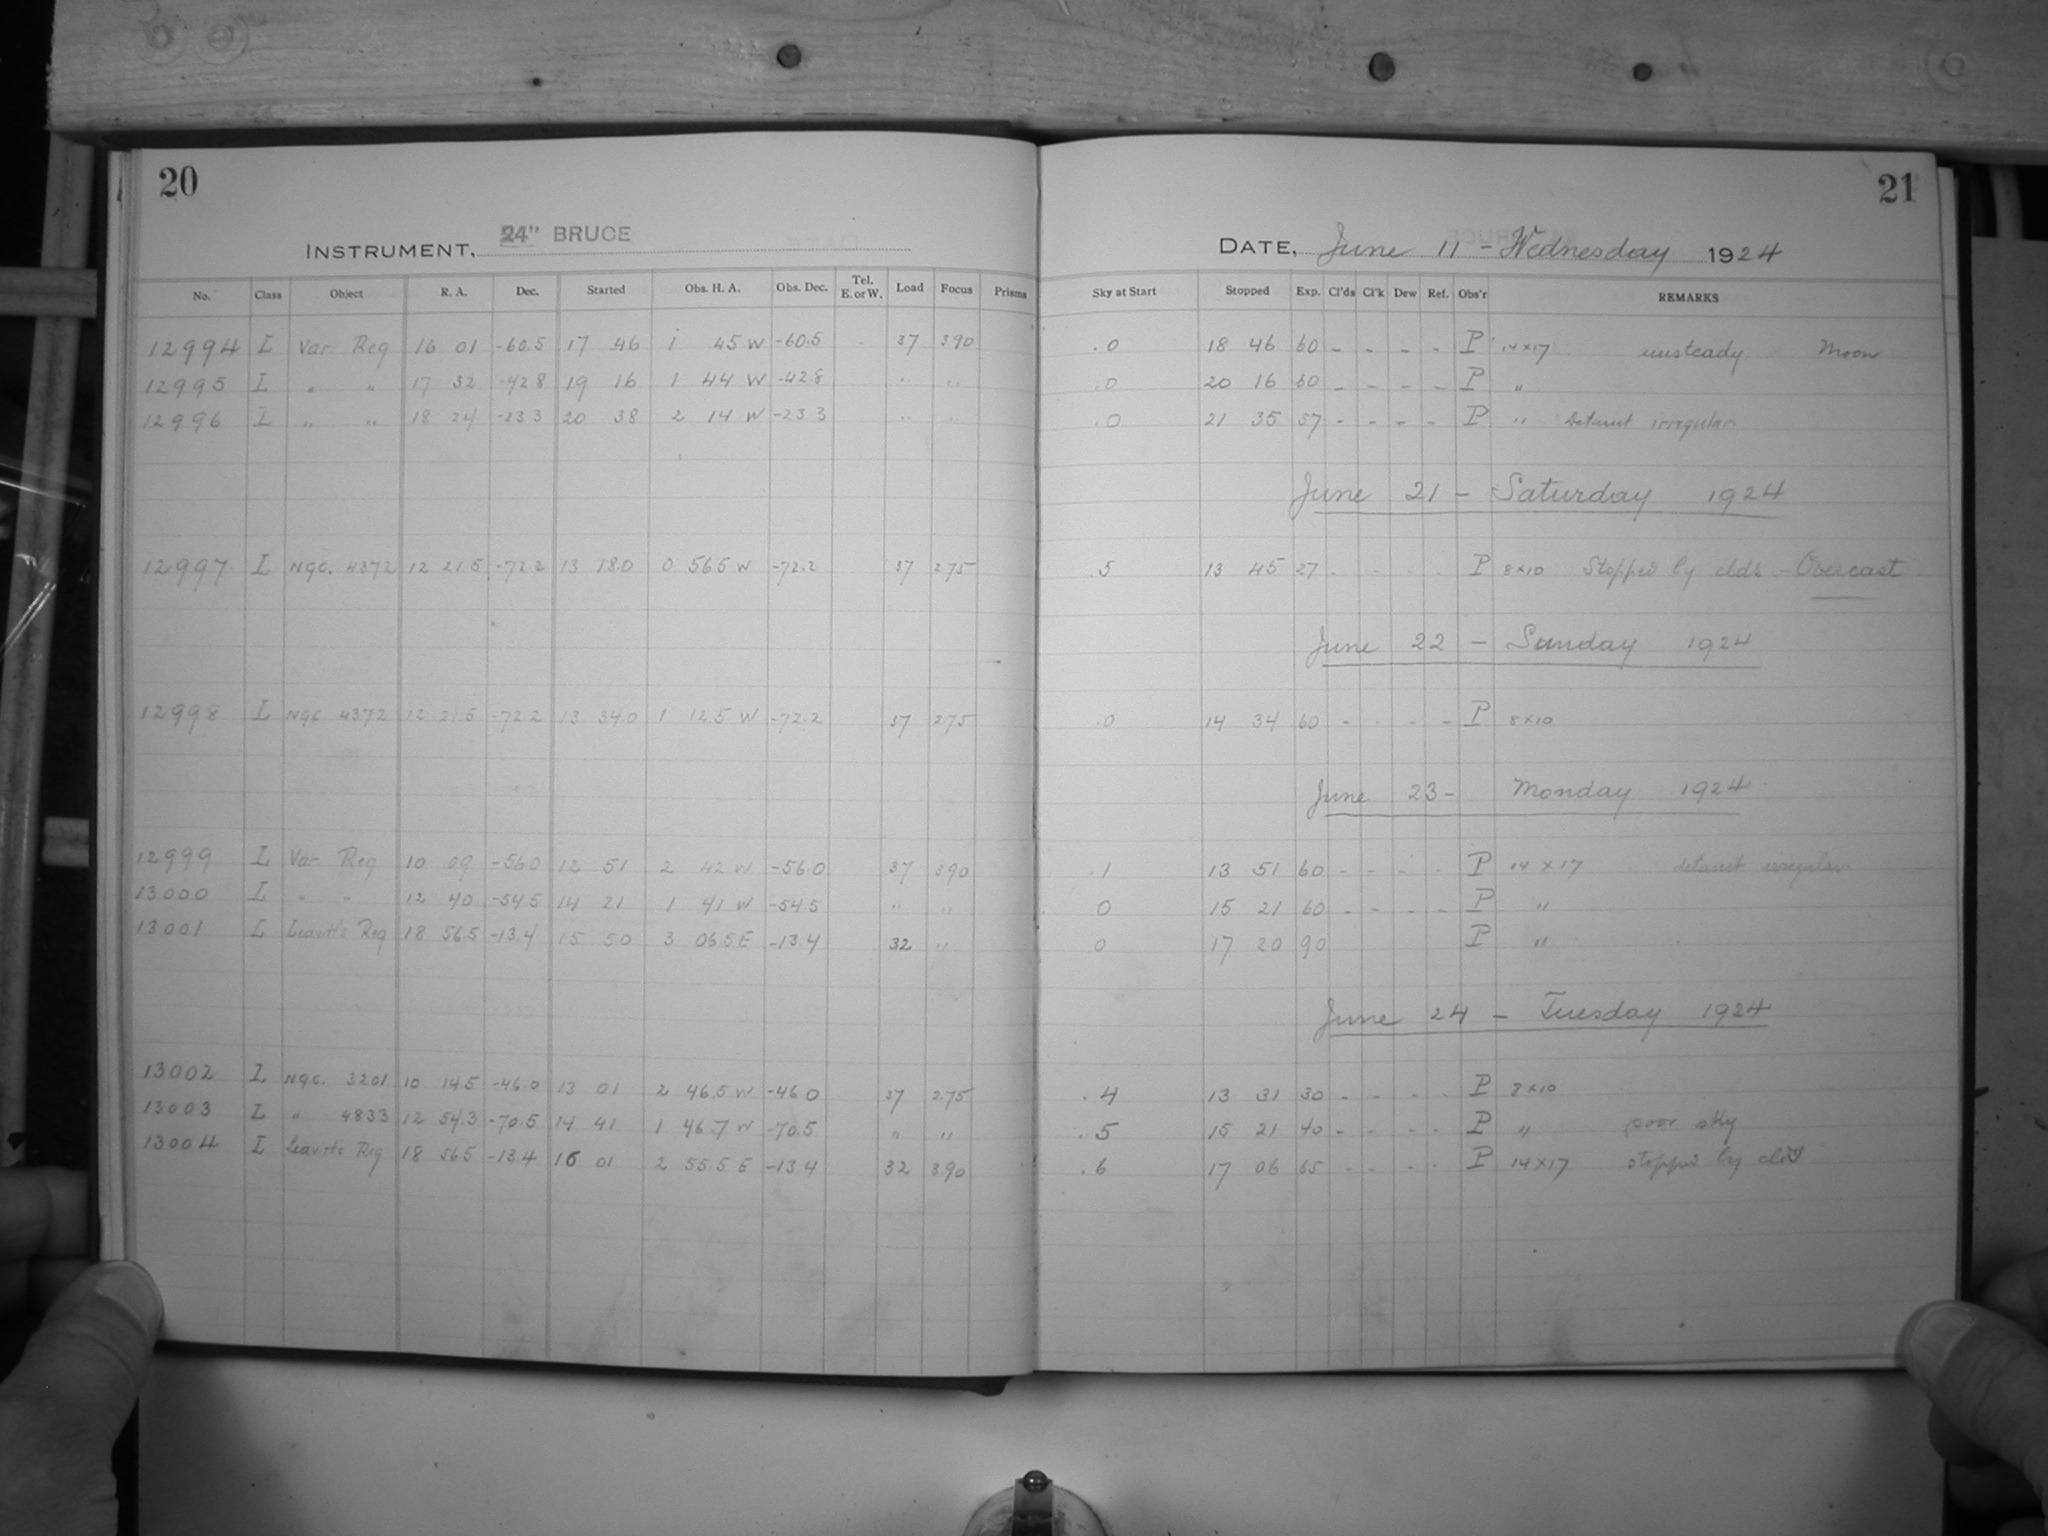 20
INSTRUMENT, 24" BRUCE
No. Class Object R. A. Dec. Started Obs. H. A. Obs. Dec. Tel. E. or W. Load Focus Prisms
12994 L Var Reg 16 01 -60.5 17 46 1 45 W -60.5 37 390
12995 L " " 17 32 -42.8 19 16 1 44 W -42.8 " "
12996 L " " 18 24 -23.3 20 38 2 14 W -23.3 " "
12997 L NGC. 4372 12 21.5 -72.2 13 18.0 0 56.5 W -72.2 37 275
12998 L NGC 4372 12 21.5 -72.2 13 34.0 1 12.5 W -72.2 37 275
12999 L Var Reg 10 09 -56.0 12 51 2 42 W -56.0 37 390
13000 L " " 12 40 -54.5 14 21 1 41 W -54.5 " "
13001 L Leavitt's Reg 18 56.5 -13.4 15 50 3 06.5 E -13.4 32 "
13002 L NGC. 3201 10 14.5 -46.0 13 01 2 46.5 W -46.0 37 275
13003 L " 4833 12 54.3 -70.5 14 41 1 46.7 W -70.5 " "
13004 L Leavitt's Reg 18 56.5 -13.4 16 01 2 55.5 E -13.4 32 390
21
DATE, June 11 - Wednesday 1924
Sky at Start Stopped Exp. Cl'ds Cl'k Dew Ref. Obs'r REMARKS
.0 18 46 60 - - - - P 14x17 unsteady Moon
.0 20 16 60 - - - - P "
.0 21 35 57 - - - - P " irregular
June 21 - Saturday 1924
.5 13 45 27 - - - - P 8x10 Stopped by clds - Overcast
June 22 - Sunday 1924
.0 14 34 60 - - - - P 8x10
June 23 - Monday 1924
.1 13 51 60 - - - - P 14x17 irregular
0 15 21 60 - - - - P "
0 17 20 90 P "
June 24 - Tuesday 1924
.4 13 31 30 - - - - P 8x10
.5 15 21 40 - - - - P " poor sky
.6 17 06 65 - - - - P 14x17 stopped by